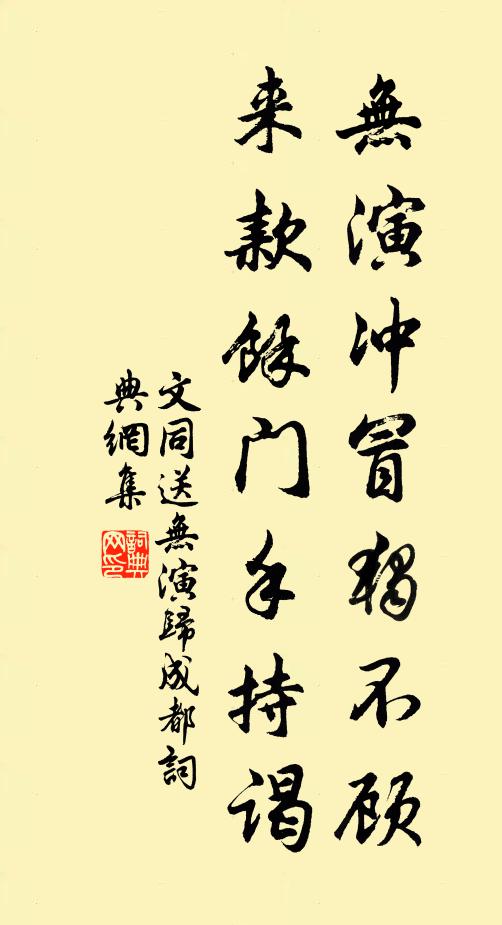 無演冲冒獨不顾
来款馀门手持谒
文同送無演歸成都詞
典網集
詞典网印